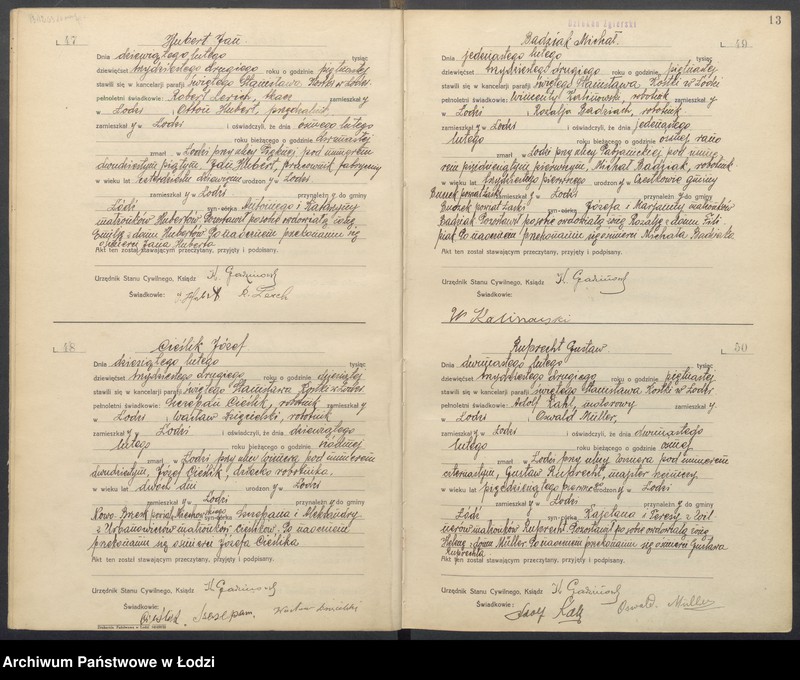 L 47
Hubert Jan.
Dnia dziewiątego lutego tysiąc
dziewięćset trzydziestego drugiego roku o godzinie piętnastej
stawili się w kancelarji parafji świętego Stanisława Kostki w Łodzi
pełnoletni świadkowie: Robert Lerch, tkacz zamieszkały
w Łodzi i Otton Hubert,
zamieszkały w Łodzi i oświadczyli, że dnia ósmego lutego
roku bieżącego o godzinie dwunastej
zmarł w Łodzi przy ulicy pod numerem
dwudziestym piątym, Jan Hubert, pracownik fabryczny
w wieku lat urodzony w Łodzi
zamieszkały w Łodzi przynależny do gminy
Łódź syn-córka Antoniego i Katarzyny
małżonków Hubertów Pozostawił po sobie owdowiałą żonę
Emilję z domu Hubertów Po naocznem przekonaniu się
o śmierci Jana Huberta
Akt ten został stawającym przeczytany, przyjęty i podpisany.
Urzędnik Stanu Cywilnego, Ksiądz K. Gadzinoch
Świadkowie: R. Lerch
L 48
Cieślik Józef
Dnia dziesiątego lutego tysiąc
dziewięćset trzydziestego drugiego roku o godzinie dziesiątej
stawili się w kancelarji parafji świętego Stanisława Kostki w Łodzi
pełnoletni świadkowie: Szczepan Cieślik, robotnik zamieszkały
w Łodzi i Wacław, robotnik
zamieszkały w Łodzi i oświadczyli, że dnia dziewiątego
lutego roku bieżącego o godzinie siódmej
zmarł w Łodzi przy ulicy pod numerem
dwudziestym, Józef Cieślik, dziecko robotnika.
w wieku lat dwóch dni urodzony w Łodzi
zamieszkały w Łodzi przynależny do gminy
Nowo Brzesk syn-córka Szczepana i Aleksandry
z Urbanowiczów małżonków Cieślików. Po naocznem
przekonaniu się o śmierci Józefa Cieślika
Akt ten został stawającym przeczytany, przyjęty i podpisany.
Urzędnik Stanu Cywilnego, Ksiądz K. Gadzinoch
Świadkowie: Cieślik Szczepan. Wacław
13
L 49
Badziak Michał.
Dnia jedenastego lutego tysiąc
dziewięćset trzydziestego drugiego roku o godzinie piętnastej
stawili się w kancelarji parafji świętego Stanisława Kostki w Łodzi
pełnoletni świadkowie: Wincenty Kalinowski, robotnik zamieszkały
w Łodzi i Rozalja Badziak, robotnik
zamieszkały w Łodzi i oświadczyli, że dnia jedenastego
lutego roku bieżącego o godzinie ósmej rano
zmarł w Łodzi przy ulicy Pabjanickiej pod numerem
pięćdziesiątym pierwszym, Michał Badziak, robotnik
w wieku lat trzydziestu pierwszego urodzony w gminy
zamieszkały w Łodzi przynależny do gminy
syn-córka Józefa i Marjanny małżonków
Badziak Pozostawił po sobie owdowiałą żonę Rozalję z domu Fili-
piak Po naocznem przekonaniu się o śmierci Michała Badziaka.
Akt ten został stawającym przeczytany, przyjęty i podpisany.
Urzędnik Stanu Cywilnego, Ksiądz K. Gadzinoch
Świadkowie:
W Kalinowski
L 50
Ruprecht Gustaw.
Dnia dwunastego lutego tysiąc
dziewięćset trzydziestego drugiego roku o godzinie piętnastej
stawili się w kancelarji parafji świętego Stanisława Kostki w Łodzi
pełnoletni świadkowie: Adolf Katz, motorowy zamieszkały
w Łodzi i Oswald Müller,
zamieszkały w Łodzi i oświadczyli, że dnia dwunastego
lutego roku bieżącego o godzinie ósmej
zmarł w Łodzi przy ulicy pod numerem
czternastym, Gustaw Ruprecht, majster
w wieku lat pięćdziesiątego pierwszego urodzony w Łodzi
zamieszkały w Łodzi przynależny do gminy
Łódź syn-córka Kajetana i Teresy z
małżonków Ruprecht Pozostawił po sobie owdowiałą żonę
z domu Müller Po naocznem przekonaniu się o śmierci Gustawa
Ruprechta
Akt ten został stawającym przeczytany, przyjęty i podpisany.
Urzędnik Stanu Cywilnego, Ksiądz K. Gadzinoch
Świadkowie: Adolf Katz Oswald Müller
Archiwum Państwowe w Łodzi